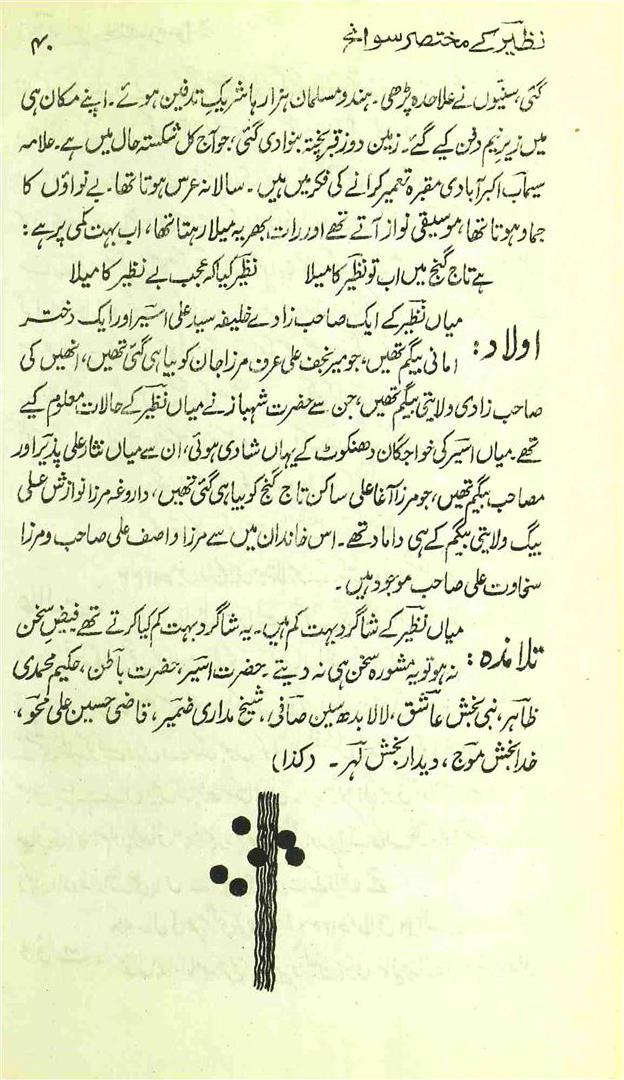 نظیرؔ کے مختصر سوانح
۴۰
گئی، سنیوں نے علاحدہ پڑھی۔ ہندو مسلمان ہزارہا شریکِ تدفین ہوئے۔ اپنے مکان ہی
میں زیرِ نیم دفن کیے گئے۔ زمین دوز قبر پختہ بنوا دی گئی، جو آج کل شکستہ حال میں ہے۔ علامہ
سیمابؔ اکبر آبادی مقبرہ تعمیر کرانے کی فکر میں ہیں۔ سالانہ عرس ہوتا تھا۔ بے نواؤں کا
جماؤ ہوتا تھا، موسیقی نواز آتے تھے اور رات بھر یہ میلا رہتا تھا، اب بہت کمی پر ہے:
ہے تاج گنج میں اب تو نظیرؔ کا میلا نظیرؔ کیا کہ عجب بے نظیر کا میلا
میاں نظیرؔ کے ایک صاحب زادے خلیفہ سید علی اسیرؔ اور ایک دختر
اولاد: امانی بیگم تھیں، جو میر نجف علی عرف مرزا جان کو بیاہی گئی تھیں، انھیں کی
صاحب زادی ولایتی بیگم تھیں، جن سے حضرت شہباز نے میاں نظیرؔ کے حالات معلوم کیے
تھے۔ میاں اسیرؔ کی خواجگان دھنکوٹ کے یہاں شادی ہوئی، ان سے میاں نثار علی پذیرؔ اور
مصاحب بیگم تھیں، جو مرزا آغا علی ساکن تاج گنج کو بیاہی گئی تھیں، داروغہ مرزا نوازش علی
بیگ ولایتی بیگم کے ہی داماد تھے۔ اس خاندان میں سے مرزا واصف علی صاحب و مرزا
سخاوت علی صاحب موجود ہیں۔
میاں نظیرؔ کے شاگرد بہت کم ہیں۔ یہ شاگرد بہت کم کیا کرتے تھے فیضِ سخن
تلامذہ: نہ ہو تو یہ مشورہ سخن ہی نہ دیتے۔ حضرت اسیرؔ، حضرت باطنؔ، حکیم محمدی
ظاہرؔ، نبی بخش عاشقؔ، لالا بدھ سین صافیؔ، شیخ مداری ضمیرؔ، قاضی حسین علی محوؔ،
خدا بخش موجؔ، دیدار بخش لہرؔ۔ (کذا)